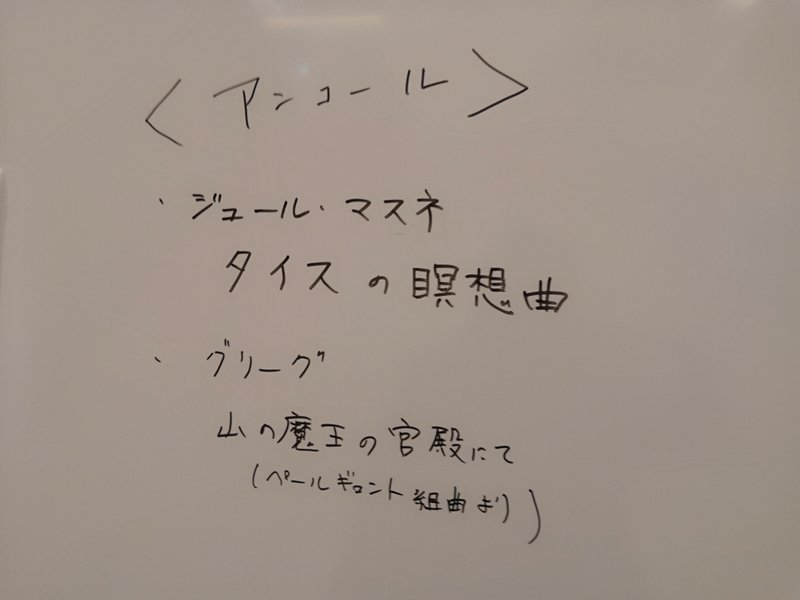 〈アンコール〉
・ジュール・マスネ
タイスの瞑想曲
・グリーグ
山の魔王の宮殿にて
(ペールギュント組曲より)